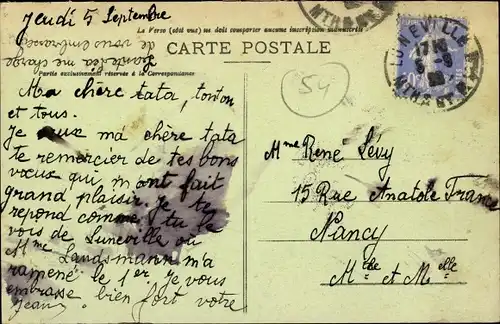 Jeudi 5 Septembre
Le Verso (côté vue) ne doit comporter aucune inscription manuscrite
CARTE POSTALE
Partie exclusivement réservée à la Correspondance
de vous embrasser
me charge
Ma chère tata, tonton
et tous.
Je veux ma chère tata
te remercier de tes bons
vœux qui m'ont fait
grand plaisir. Je te
repond comme tu le
vois de Luneville où
Mme Landsmann m'a
ramené le 1er. Je vous
embrasse bien fort votre
Jean
54
LUNEVILLE
MTHE ET M
Mme René Lévy
15 Rue Anatole France
Nancy
Mthe et Melle